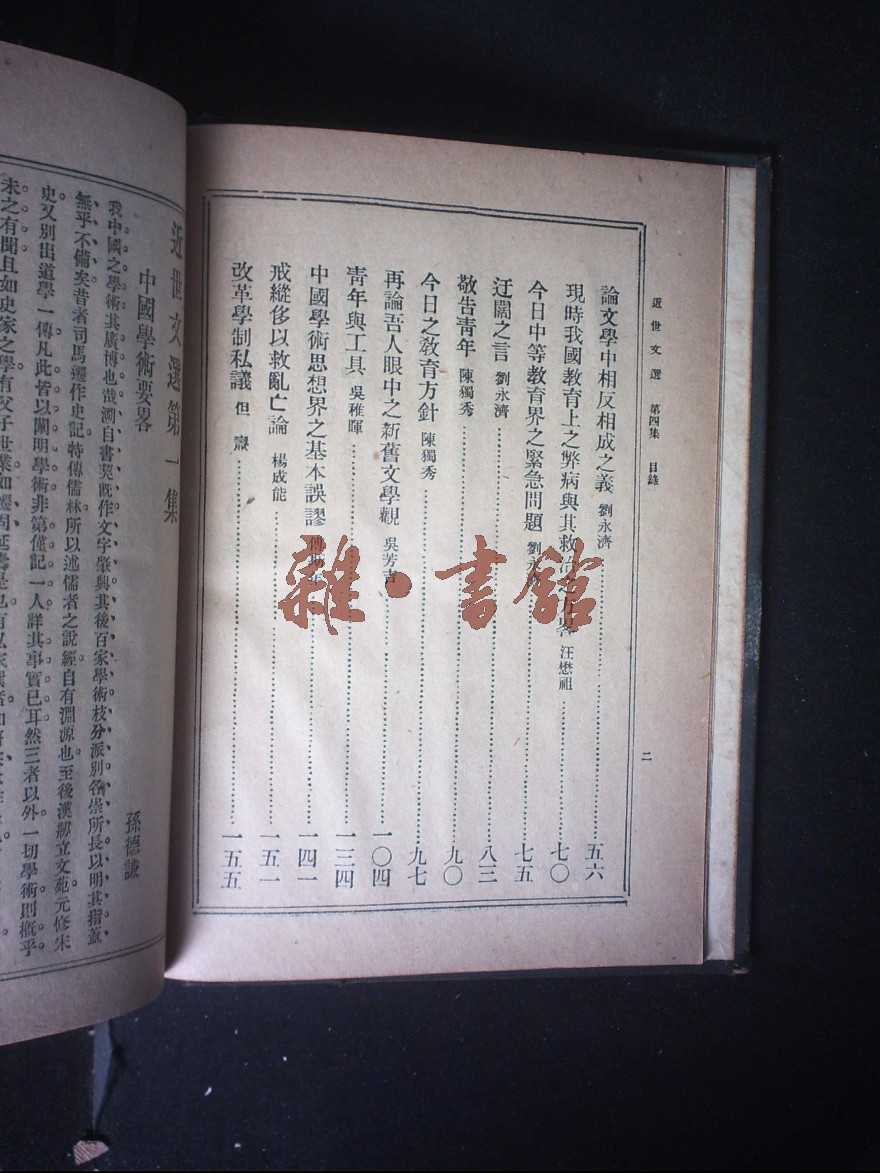 近世文選 第四集 目錄
二
論文學中相反相成之義 劉永濟 五六
現時我國教育上之弊病與其救治之方畧 汪懋祖 七〇
今日中等教育界之緊急問題 劉永濟 七五
迂闊之言 劉永濟 八三
敬告青年 陳獨秀 九〇
今日之教育方針 陳獨秀 九七
再論吾人眼中之新舊文學觀 吳芳吉 一〇四
青年與工具 吳稚暉 一三四
中國學術思想界之基本誤謬 傅斯年 一四一
戒縱侈以救亂亡論 楊成能 一五一
改革學制私議 但燾 一五五
雜·書館
近世文選第一集
中國學術要畧
孫德謙
我中國之學術其廣博也哉溯自書契既作文字肇興其後百家學術枝分派別各崇所長以明其指蓋
無乎不備矣昔者司馬遷作史記特傳儒林所以述儒者之說經自有淵源也至後漢鄴立文苑元修宋
史又別出道學一傳凡此皆以闡明學術非第僅記一人詳其事實已耳然三者以外一切學術則概乎
未之有聞且如史家之學有父子世業如遷固延壽是也有以家